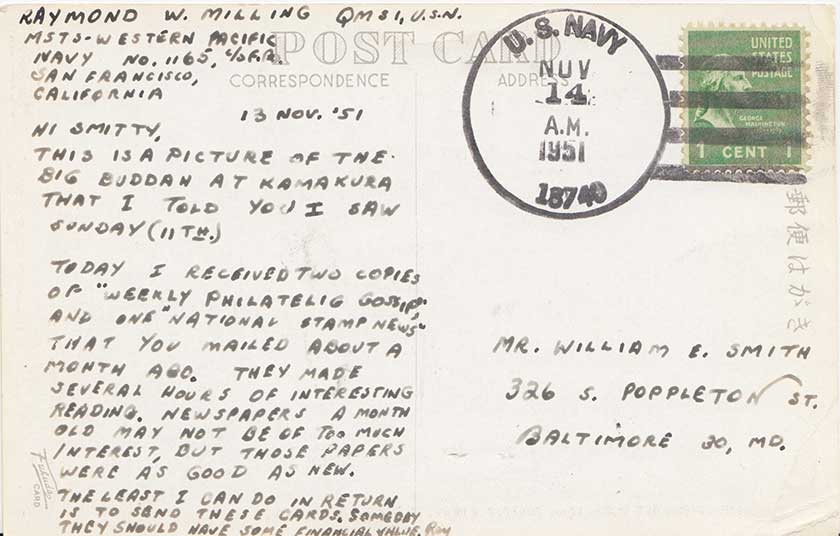 RAYMOND W. MILLING QMS1, U.S.N.
MSTS-WESTERN PACIFIC
NAVY NO. 1165, c/o F.P.O.
SAN FRANCISCO,
CALIFORNIA
POST CARD
CORRESPONDENCE
ADDRESS
13 NOV. '51
HI SMITTY,
THIS IS A PICTURE OF THE
BIG BUDDAH AT KAMAKURA
THAT I TOLD YOU I SAW
SUNDAY (11TH.)
TODAY I RECEIVED TWO COPIES
OF "WEEKLY PHILATELIC GOSSIP"
AND ONE "NATIONAL STAMP NEWS"
THAT YOU MAILED ABOUT A
MONTH AGO. THEY MADE
SEVERAL HOURS OF INTERESTING
READING. NEWSPAPERS A MONTH
OLD MAY NOT BE OF TOO MUCH
INTEREST, BUT THOSE PAPERS
WERE AS GOOD AS NEW.
THE LEAST I CAN DO IN RETURN
IS TO SEND THESE CARDS. SOMEDAY
THEY SHOULD HAVE SOME FINANCIAL VALUE. Ray
Fukuda
CARD
U.S. NAVY
NOV
14
A.M.
1951
18740
UNITED
STATES
POSTAGE
GEORGE
WASHINGTON
1 CENT 1
郵便はがき
MR. WILLIAM E. SMITH
326 S. POPPLETON ST.
BALTIMORE 30, MD.